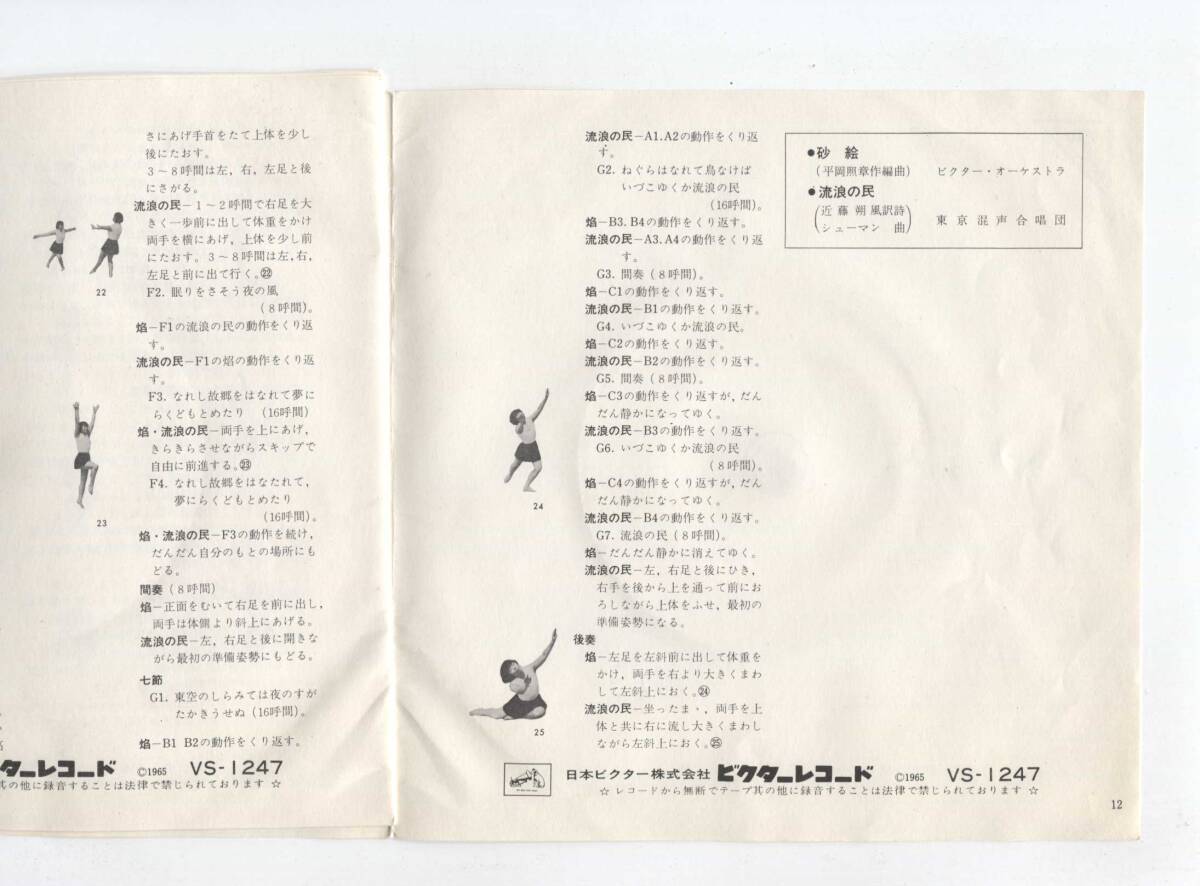 さにあげ手首をたて上体を少し
後にたおす。
3〜8呼間は左,右,左足と後
にさがる。
流浪の民−1〜2呼間で右足を大
きく一歩前に出して体重をかけ
両手を横にあげ,上体を少し前
にたおす。3〜8呼間は左,右,
左足と前に出て行く。㉒
22
F2. 眠りをさそう夜の風
(8呼間)。
焰−F1の流浪の民の動作をくり返
す。
流浪の民−F1の焰の動作をくり返
す。
F3. なれし故郷をはなれて夢に
らくどもとめたり (16呼間)
焰・流浪の民−両手を上にあげ,
きらきらさせながらスキップで
自由に前進する。㉓
23
F4. なれし故郷をはなたれて,
夢にらくどもとめたり
(16呼間)。
焰・流浪の民−F3の動作を続け,
だんだん自分のもとの場所にも
どる。
間奏(8呼間)
焰−正面をむいて右足を前に出し,
両手は体側より斜上にあげる。
流浪の民−左,右足と後に開きな
がら最初の準備姿勢にもどる。
七節
G1. 東空のしらみては夜のすが
たかきうせぬ(16呼間)。
焰−B1 B2の動作をくり返す。
ターレコード ©1965 VS-1247
其の他に録音することは法律で禁じられております ☆
流浪の民−A1.A2の動作をくり返
す。
G2. ねぐらはなれて鳥なけば
いづこゆくか流浪の民
(16呼間)。
焰−B3.B4の動作をくり返す。
流浪の民−A3.A4の動作をくり返
す。
G3. 間奏(8呼間)。
焰−C1の動作をくり返す。
流浪の民−B1の動作をくり返す。
G4. いづこゆくか流浪の民。
焰−C2の動作をくり返す。
流浪の民−B2の動作をくり返す。
G5. 間奏(8呼間)。
焰−C3の動作をくり返すが,だん
だん静かになってゆく。
流浪の民−B3の動作をくり返す。
G6. いづこゆくか流浪の民
(8呼間)。
焰−C4の動作をくり返すが,だん
だん静かになってゆく。
24
流浪の民−B4の動作をくり返す。
G7. 流浪の民(8呼間)。
焰−だんだん静かに消えてゆく。
流浪の民−左,右足と後にひき,
右手を後から上を通って前にお
ろしながら上体をふせ,最初の
準備姿勢になる。
後奏
焰−左足を左斜前に出して体重を
かけ,両手を右より大きくまわ
して左斜上におく。㉔
流浪の民−坐ったまゝ,両手を上
体と共に右に流し大きくまわし
ながら左斜上におく。㉕
25
●砂絵
(平岡照章作編曲) ビクター・オーケストラ
●流浪の民
(近藤朔風訳詩
シューマン 曲) 東京混声合唱団
日本ビクター株式会社 ビクターレコード ©1965 VS-1247
☆ レコードから無断でテープ其の他に録音することは法律で禁じられております ☆
12